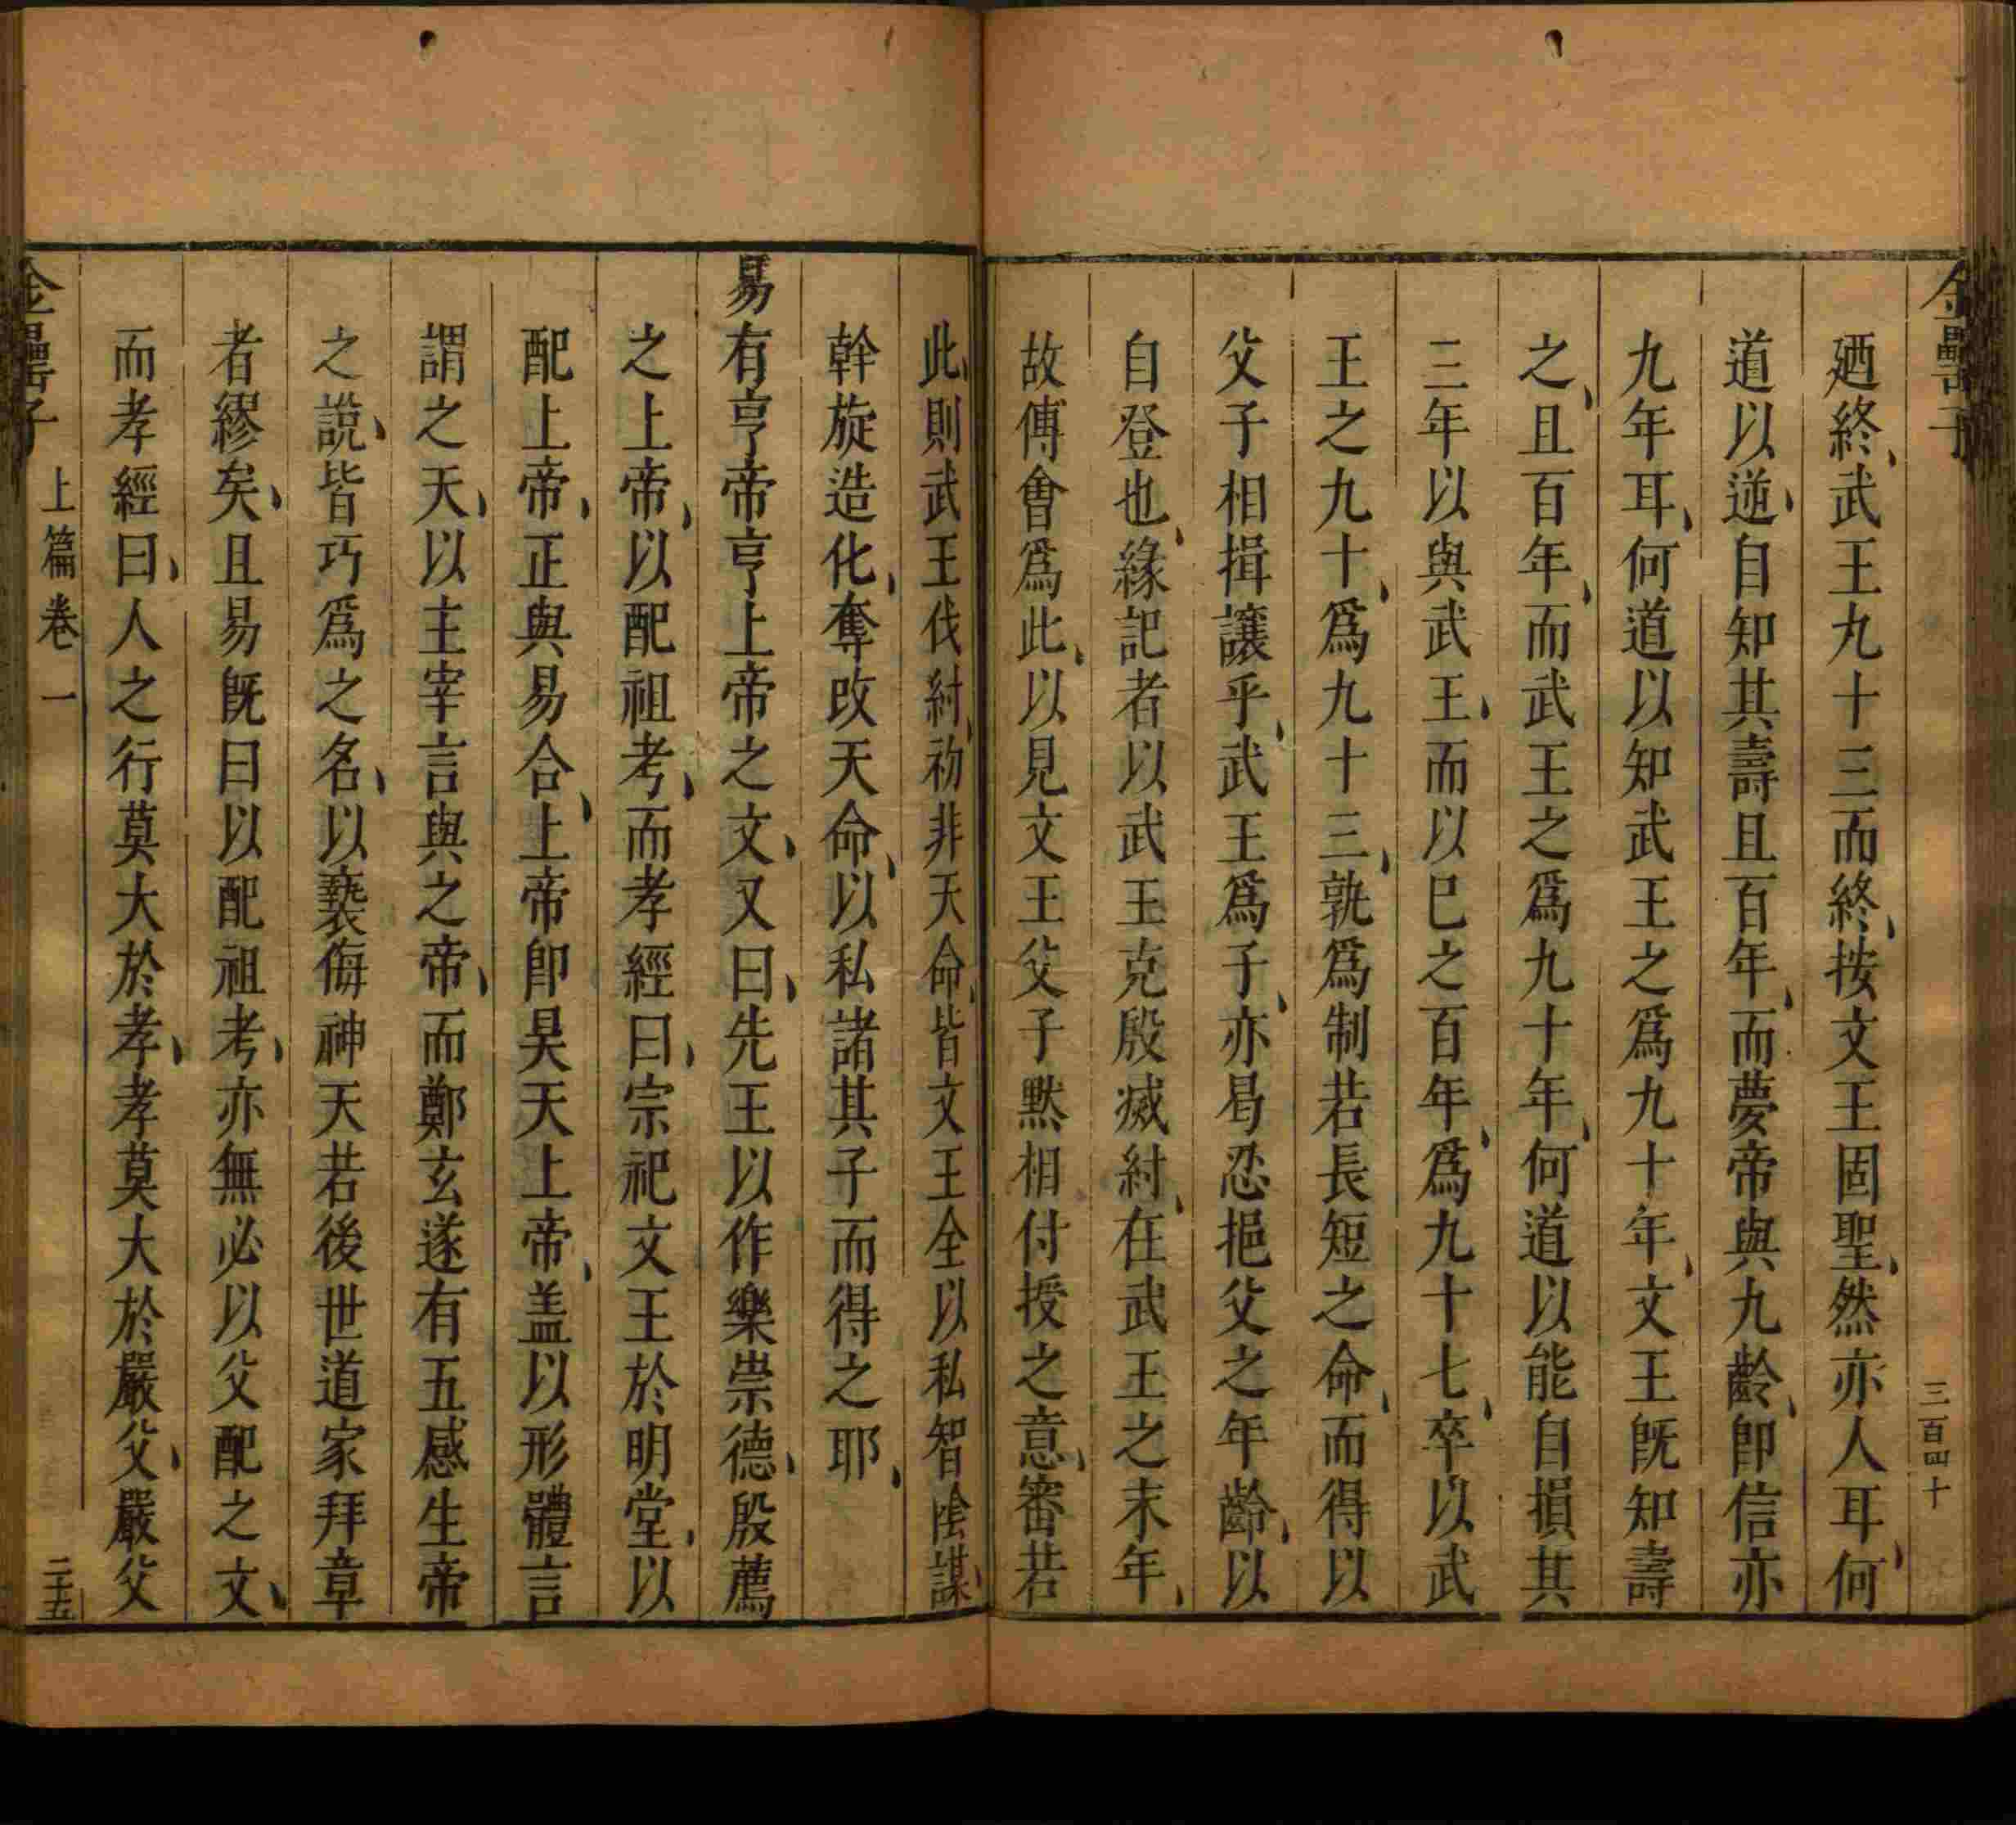 金罍子
三百四十
廼終武王九十三而終按文王固聖然亦人耳何
道以逆自知其壽且百年而夢帝與九齡卽信亦
九年耳何道以知武王之爲九十年文王旣知壽
之且百年而武王之爲九十年何道以能自損其
三年以與武王而以巳之百年爲九十七卒以武
王之九十爲九十三孰爲制若長短之命而得以
父子相揖讓乎武王爲子亦曷忍挹父之年齡以
自登也緣記者以武王克殷滅紂在武王之末年
故傅會爲此以見文王父子默相付授之意審若
此則武王伐紂初非天命皆文王全以私智陰謀
幹旋造化奪改天命以私諸其子而得之耶
易有亨帝亨上帝之文又曰先王以作樂崇德殷薦
之上帝以配祖考而孝經曰宗祀文王於明堂以
配上帝正與易合上帝卽昊天上帝盖以形體言
謂之天以主宰言與之帝而鄭玄遂有五感生帝
之說皆巧爲之名以褻侮神天若後世道家拜章
者繆矣且易旣曰以配祖考亦無必以父配之文
而孝經曰人之行莫大於孝孝莫大於嚴父嚴父
金罍子
上篇卷一
二十五